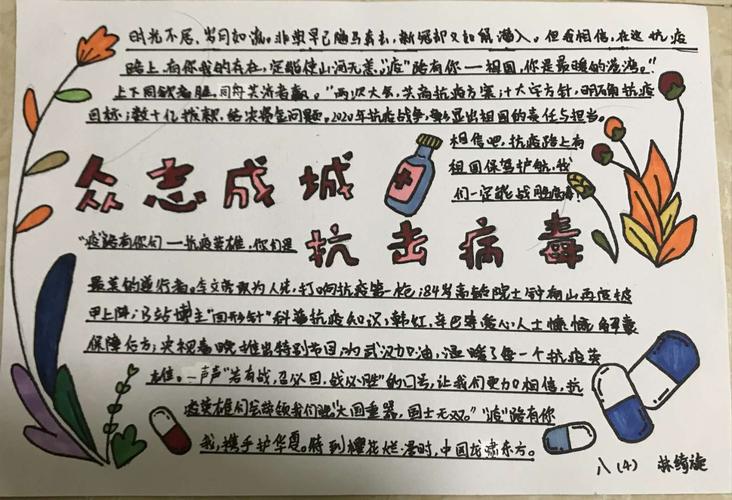 时光不居，岁月如流。非典早已随马车去，新冠却又如期潜入。但我相信，在这抗疫
路上，有你我的存在，定能使山河无恙。“疫”路有你——祖国，你是最暖的港湾。“
上下同欲者胜，同舟共济者赢。”两次大会，共商抗疫方案；十大字方针，明确抗疫
目标；数十亿拨款，解决资金问题。2020年抗疫战争，彰显出祖国的责任与担当。
相信吧，抗疫路上有
祖国保驾护航，我
们一定能战胜病毒！
众志成城
抗击病毒
“疫”路有你们——抗疫英雄，你们是
最美的逆行者。李文亮敢为人先，打响抗疫第一枪；84岁高龄院士钟南山再度披
甲上阵；B站博主“回形针”科普抗疫知识；韩红，辛巴等爱心人士慷慨解囊
保障后方；央视春晚推出特别节目，为武汉加油，温暖了每一个抗疫英
雄。一声声“若有战，召必回，战必胜”的口号，让我们更加相信，抗
疫英雄们会带领我们脱“大国重器，国士无双。”“疫”路有你
我，携手护华夏。待到樱花烂漫时，中国龙啸东方。
八(4) 林绮旋